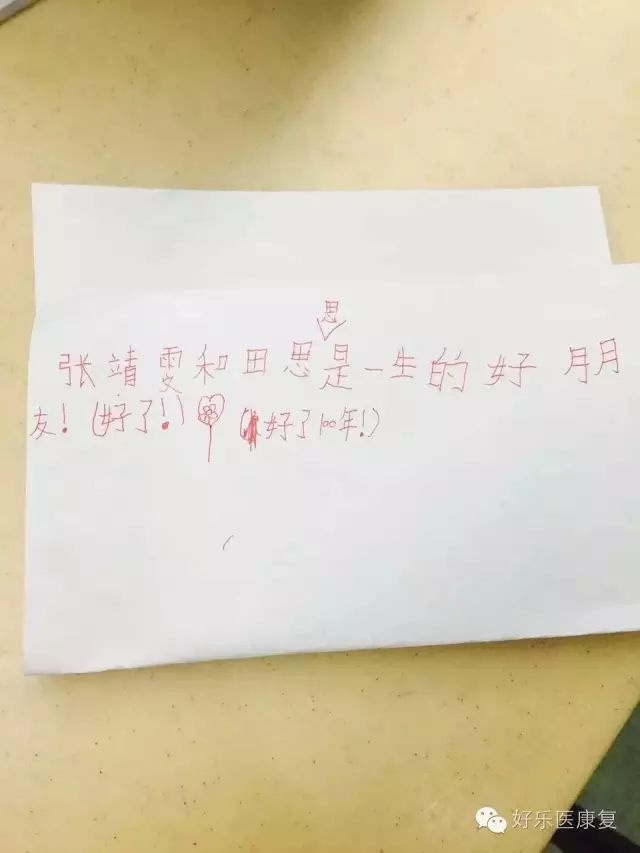 思
张靖雯和田思是一生的好朋
友！(好了！) (好了100年！)
好乐医康复